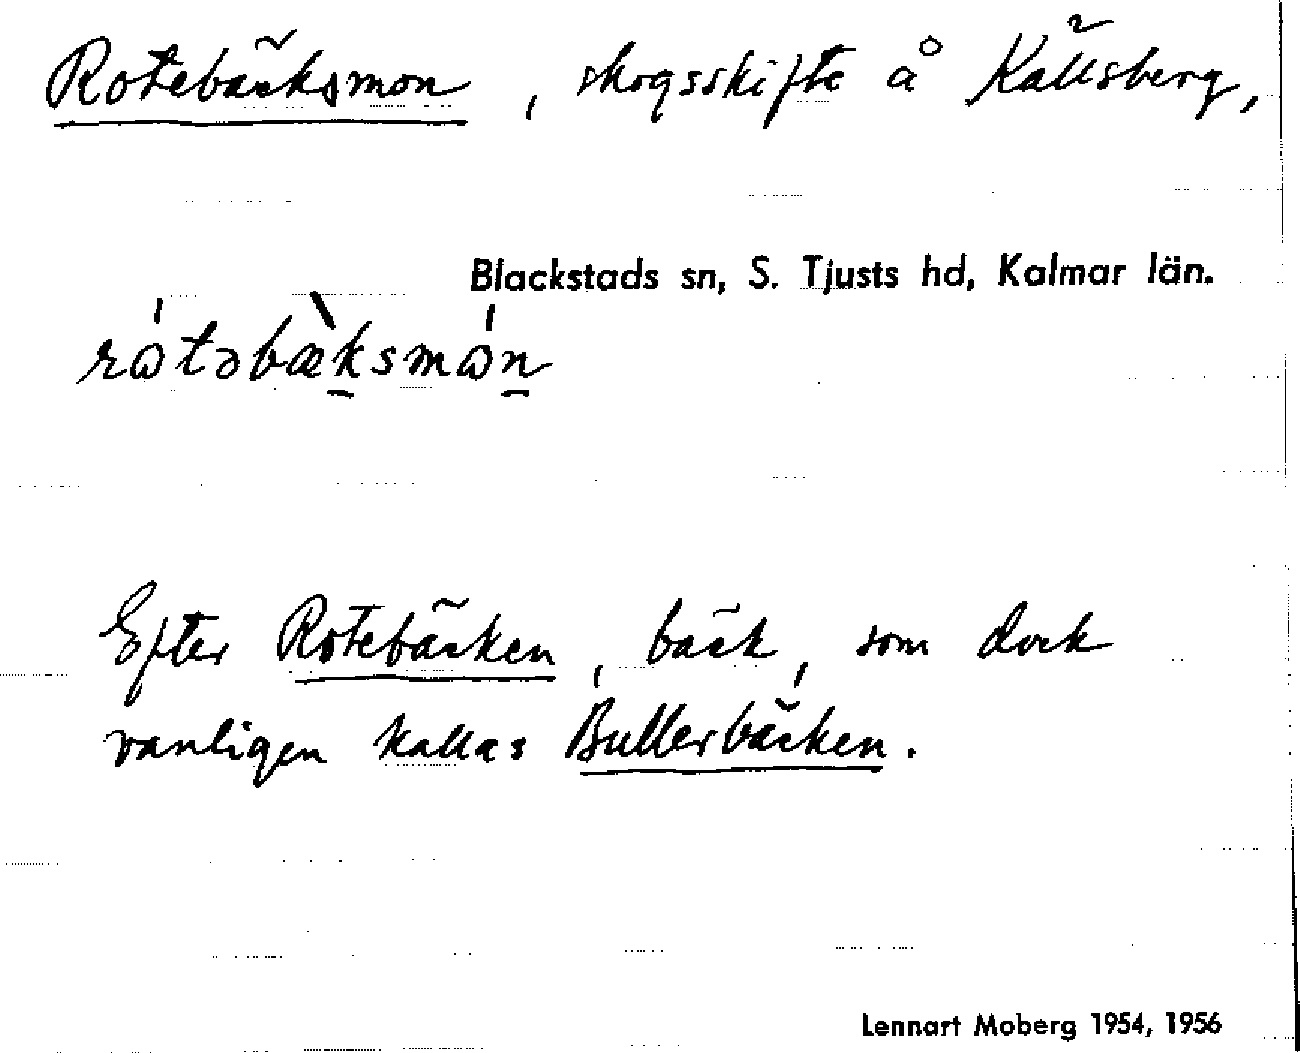 Rotebäcksmon, skogsskifte å Källsberg,
Blackstads sn, S. Tjusts hd, Kalmar län.
rótəbæ̀ksmón
Efter Rotebäcken, bäck, som dock
vanligen kallas Bullerbäcken.
Lennart Moberg 1954, 1956